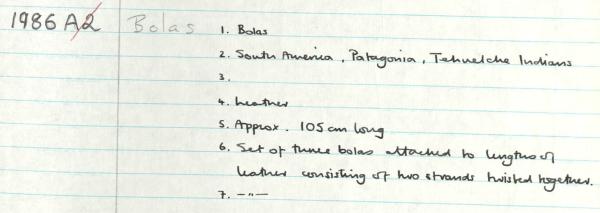 1986 A2 Bolas 1. Bolas
2. South America, Patagonia, Tehuelche Indians
3.
4. Leather
5. Approx. 105 cm long
6. Set of three bolas attached to lengths of
leather consisting of two strands twisted together.
7. —"—